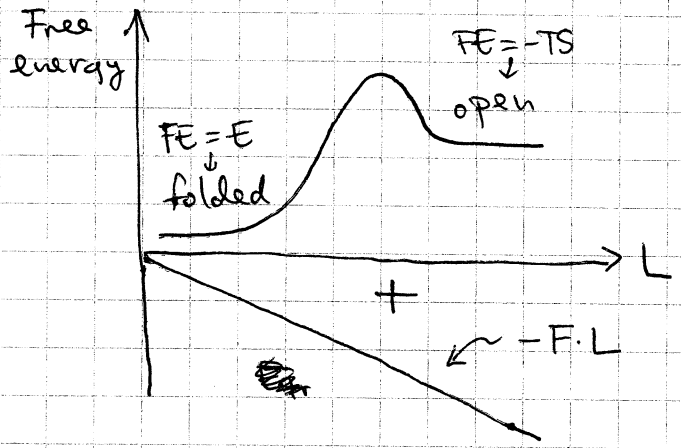 Free
energy
FE = -TS
open
FE = E
folded
L
+
- F · L